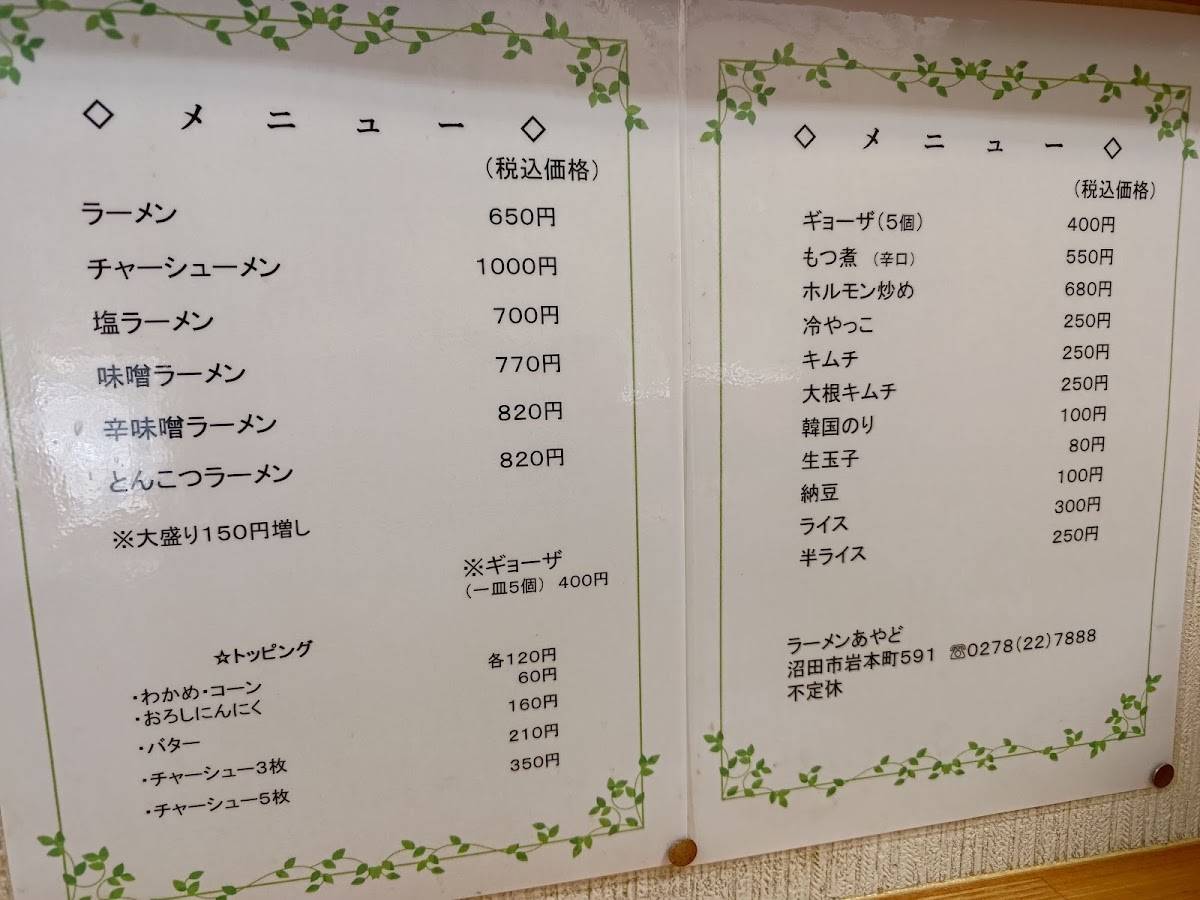 ◇ メニュー ◇
(税込価格)
ラーメン 650円
チャーシューメン 1000円
塩ラーメン 700円
味噌ラーメン 770円
辛味噌ラーメン 820円
とんこつラーメン 820円
※大盛り150円増し
※ギョーザ
(一皿5個) 400円
☆トッピング
・わかめ・コーン 各120円
・おろしにんにく 60円
・バター 160円
・チャーシュー3枚 210円
・チャーシュー5枚 350円
◇ メニュー ◇
(税込価格)
ギョーザ(5個) 400円
もつ煮 (辛口) 550円
ホルモン炒め 680円
冷やっこ 250円
キムチ 250円
大根キムチ 250円
韓国のり 100円
生玉子 80円
納豆 100円
ライス 300円
半ライス 250円
ラーメンあやど
沼田市岩本町591 ☏0278(22)7888
不定休